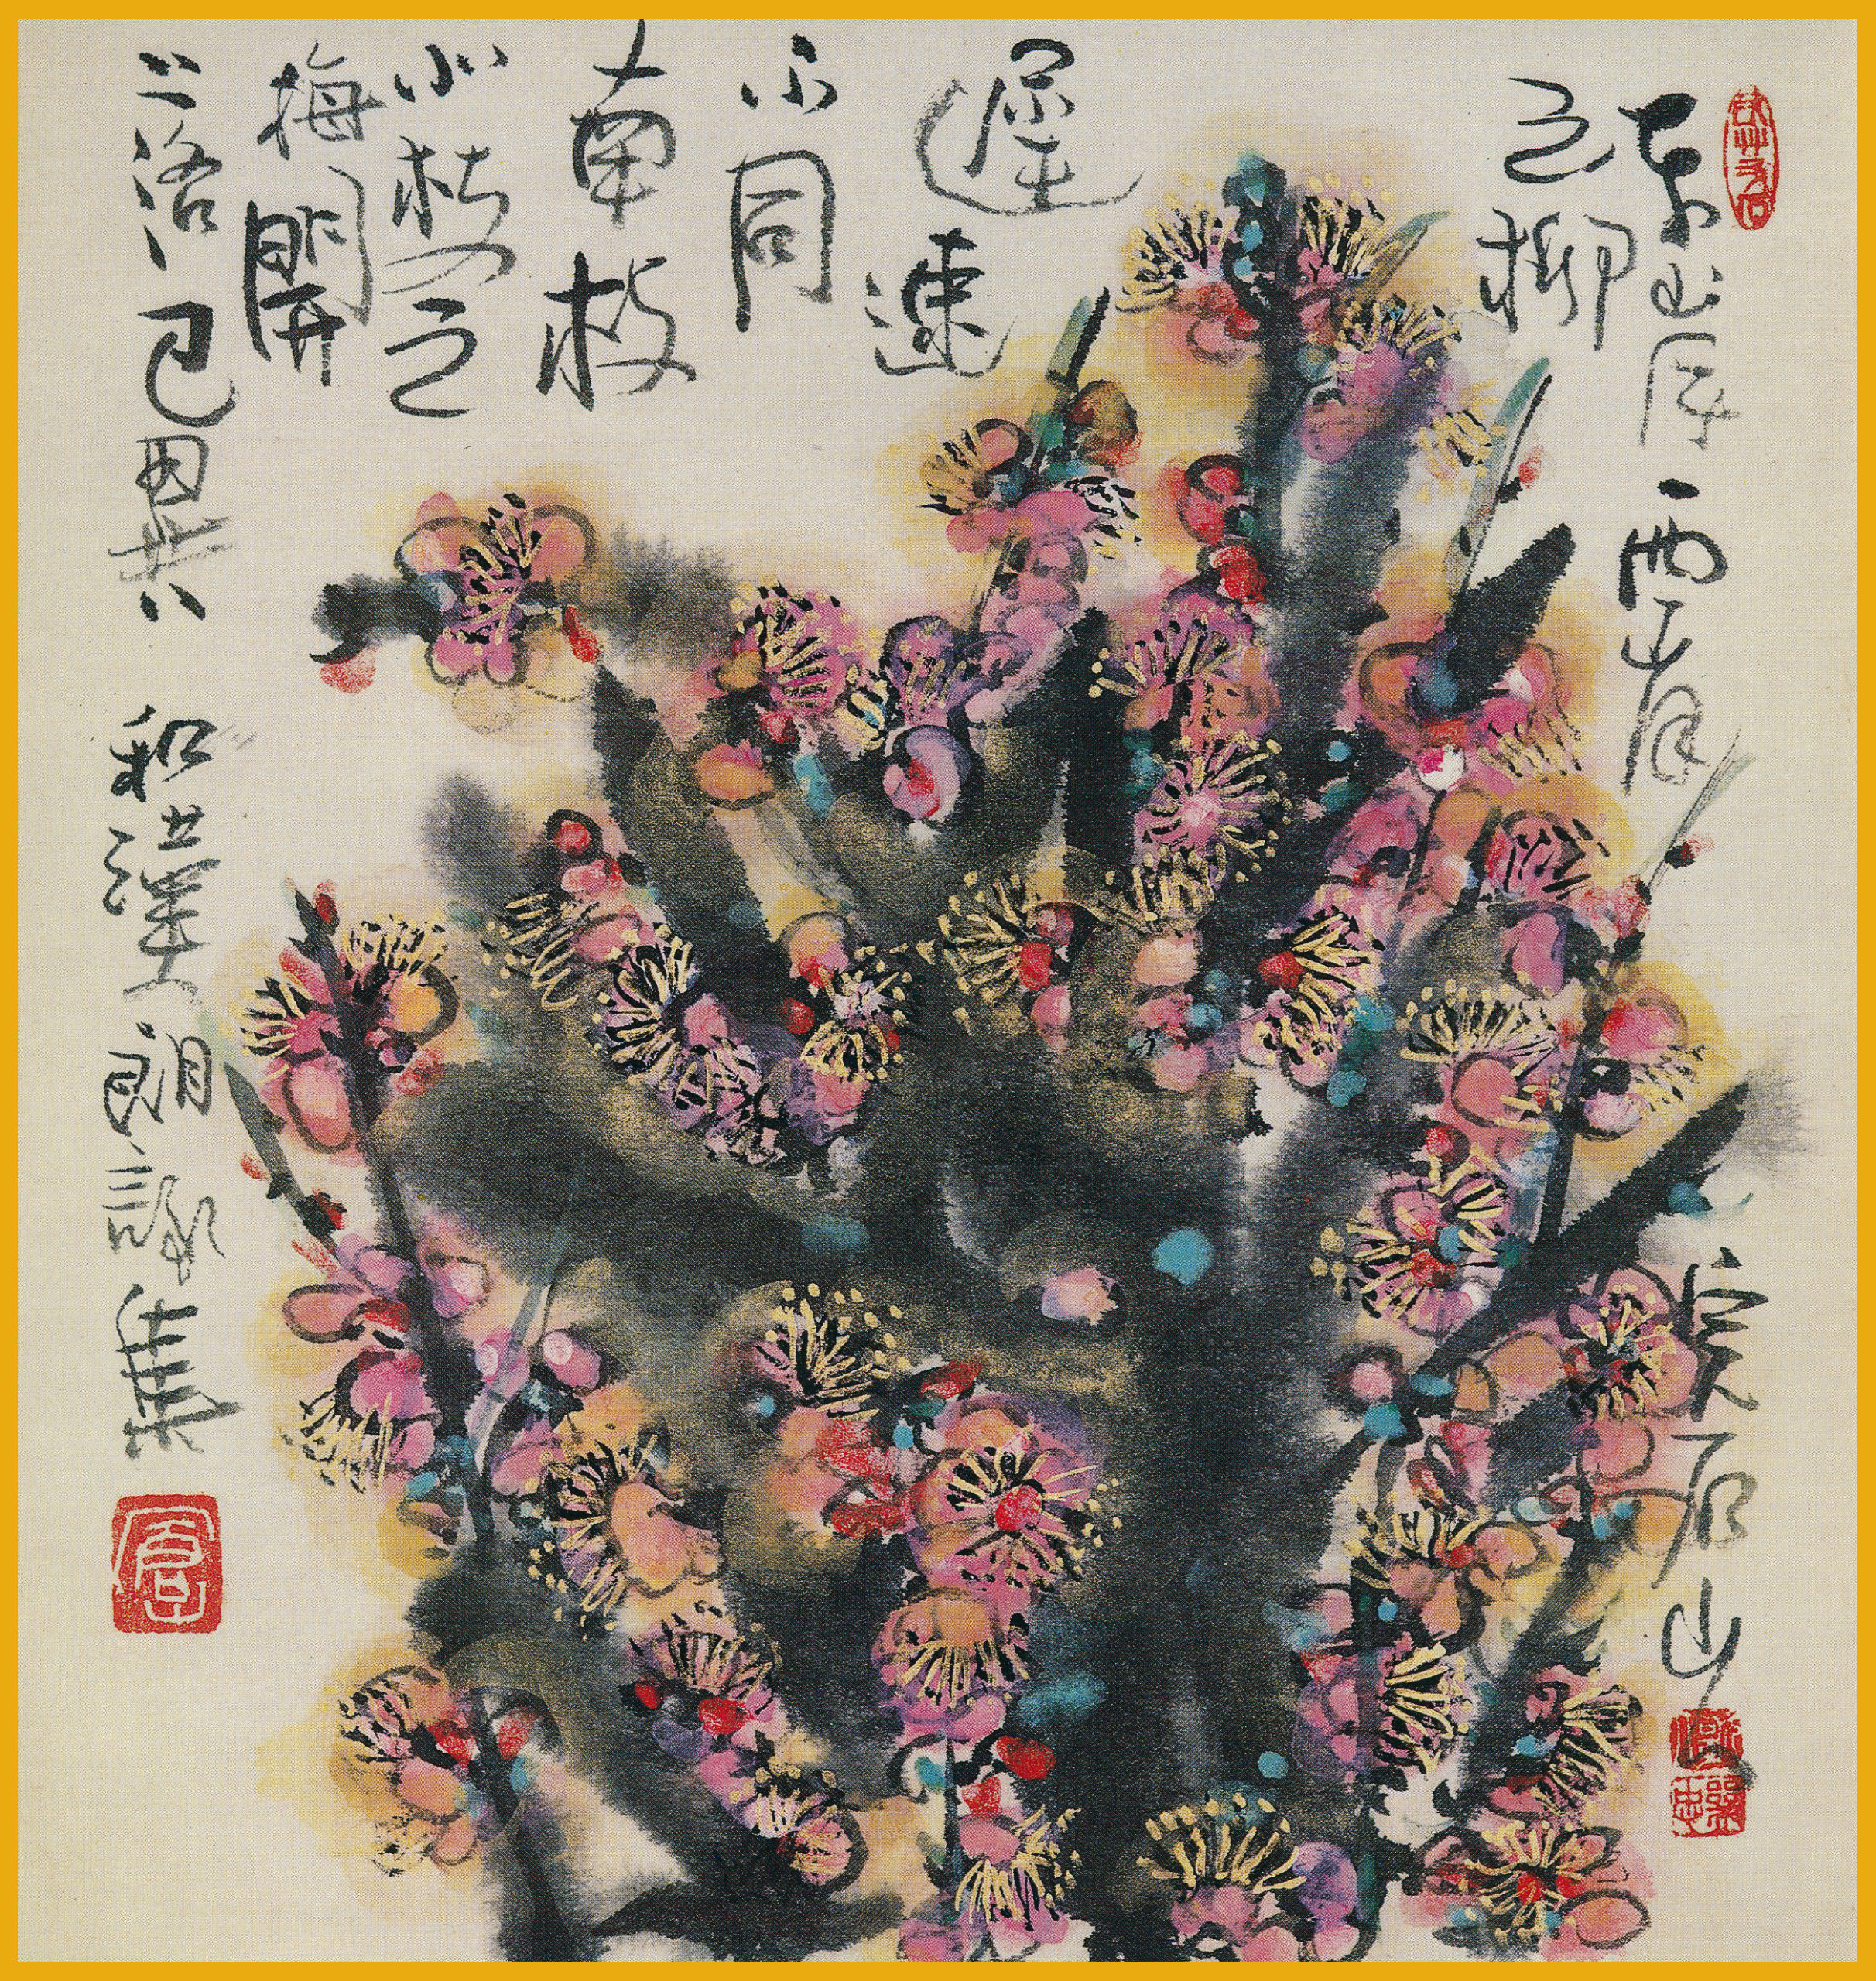 東岸西岸
之柳
遲
速
不同
南枝
北枝之
梅開
落已異 和漢朗詠集